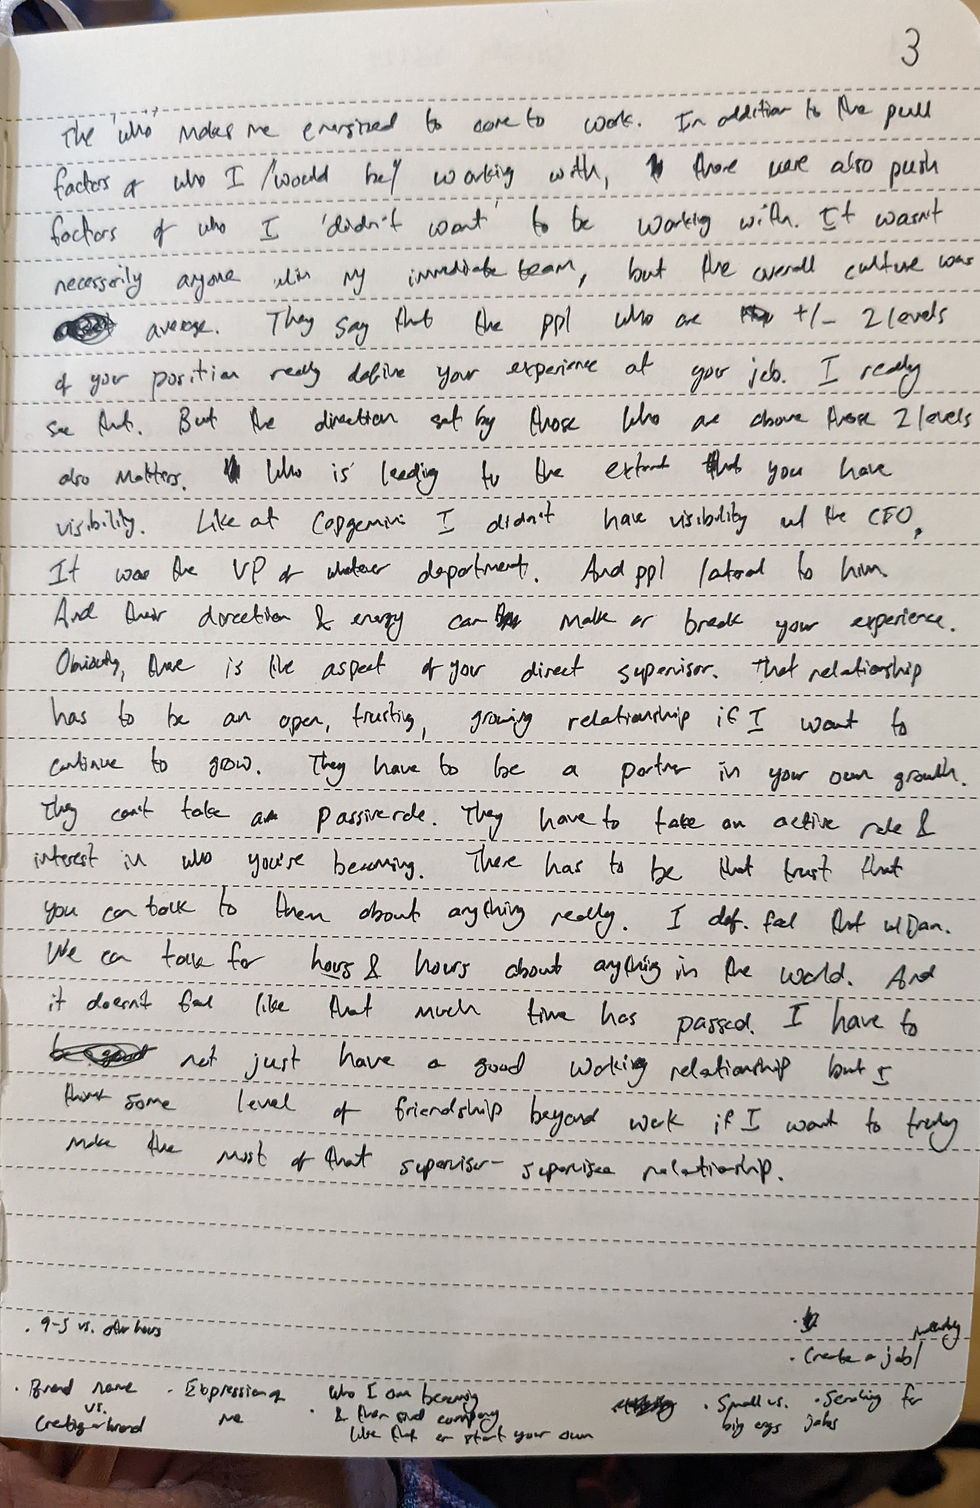 3
The 'who' makes me energized to come to work. In addition to the pull
factors of who I /would be/ working with, there were also push
factors of who I 'didn't want' to be working with. It wasn't
necessarily anyone w/in my immediate team, but the overall culture was
average. They say that the ppl who are +/- 2 levels
of your position really define your experience at your job. I really
see that. But the direction set by those who are above those 2 levels
also matters. Who is leading to the extent that you have
visibility. Like at Capgemini I didn't have visibility w/ the CEO,
It was the VP of whatever department. And ppl lateral to him
And their direction & energy can make or break your experience.
Obviously, there is the aspect of your direct supervisor. That relationship
has to be an open, trusting, growing relationship if I want to
continue to grow. They have to be a partner in your own growth.
They can't take a passive role. They have to take an active role &
interest in who you're becoming. There has to be that trust that
you can talk to them about anything really. I def. feel that w/ Dan.
We can talk for hours & hours about anything in the world. And
it doesn't feel like that much time has passed. I have to
not just have a good working relationship but I
think some level of friendship beyond work if I want to truly
make the most of that supervisor-supervisee relationship.
· 9-5 vs. other hours
· Create a job/
· Brand name vs. Creating a brand
· Expression of me
· who I am becoming & then find company like that or start your own
· Small vs. big orgs
· Searching for jobs